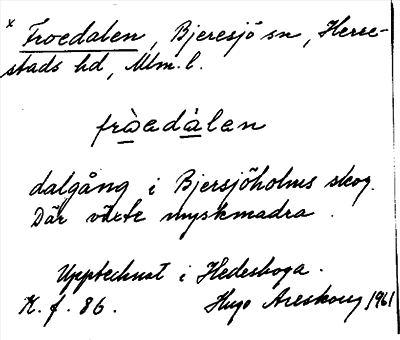 x Froedalen, Bjeresjö sn, Herre-
stads hd, Mlm. l.
fròedàlen
dalgång i Bjersjöholms skog.
Där växte myskmadra.
Upptecknat i Hedeskoga.
K. f. 86. Hugo Areskoug 1961